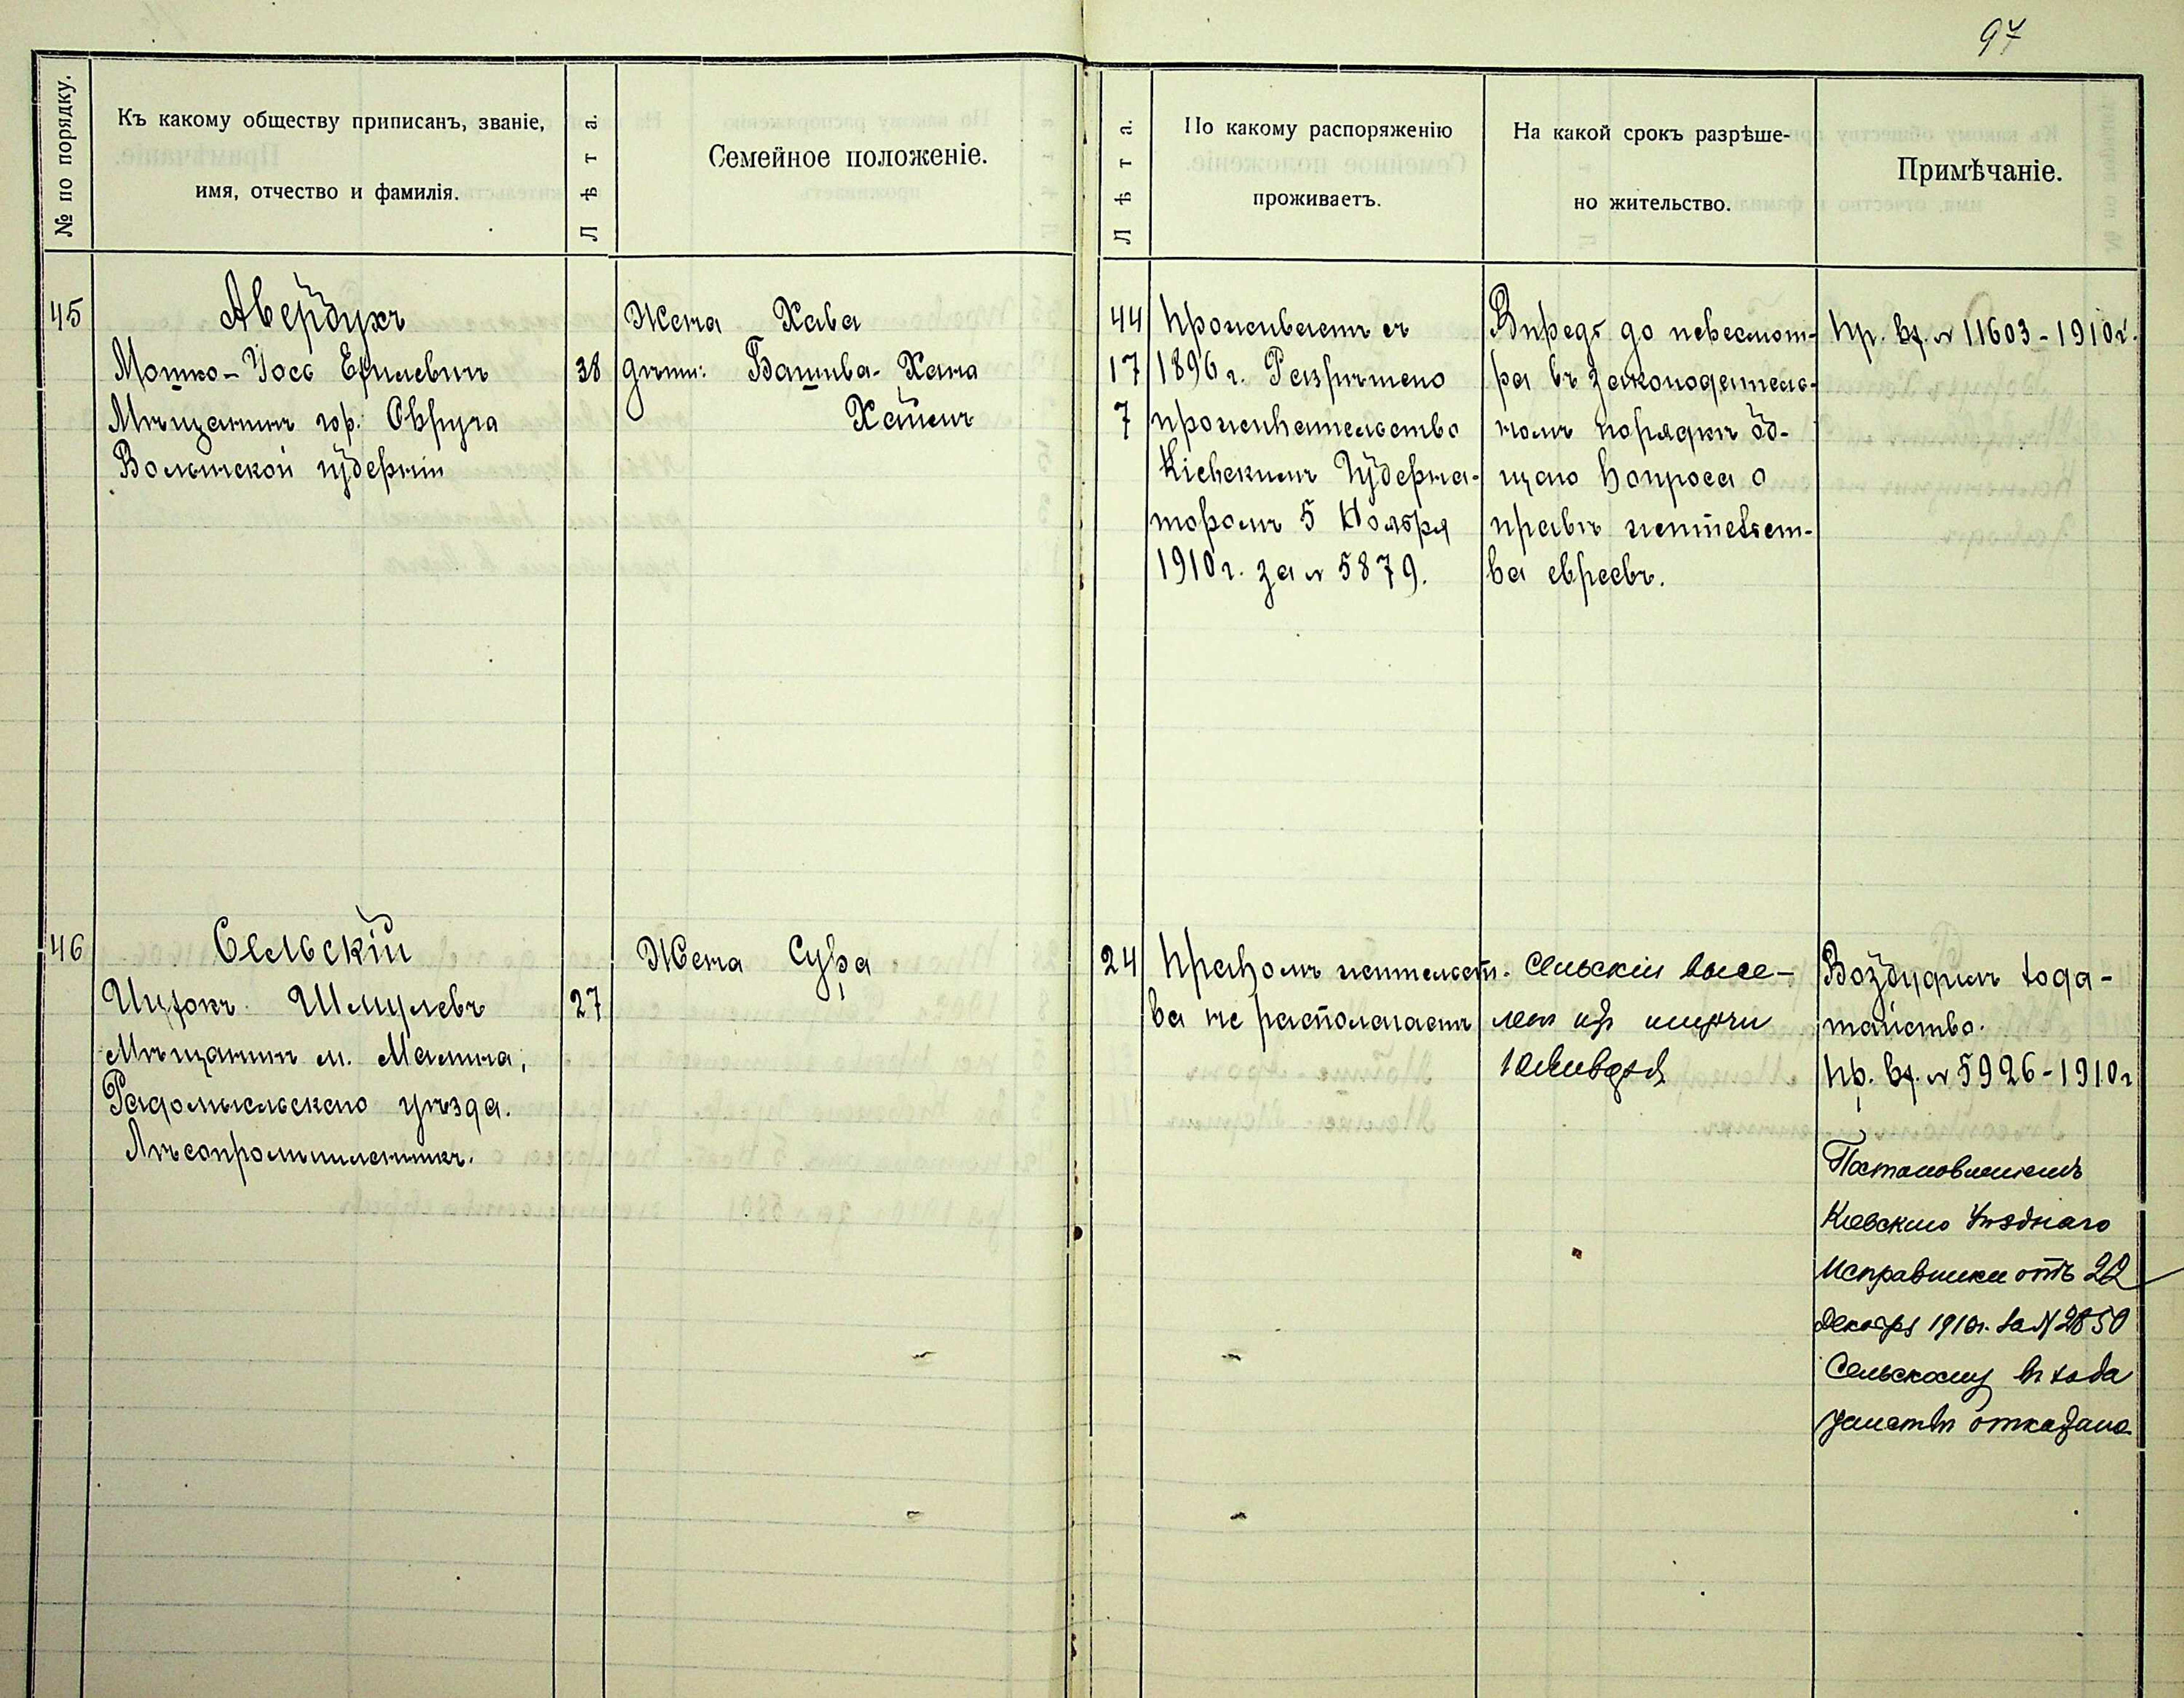 97
№ по порядку.
Къ какому обществу приписанъ, званіе,
имя, отчество и фамилія.
Лѣта.
Семейное положеніе.
Лѣта.
По какому распоряженію
проживаетъ.
На какой срокъ разрѣше-
но жительство.
Примѣчаніе.
45
Авербухъ
Мошко-Іось
Мѣщанинъ гор. Овруча
Волынской губерніи
38
Жена Хава
дѣти: Башива-Хана
Хаимъ
44
17
7
Проживаетъ съ
1896 г. Разрѣшено
прожительство
Кіевскимъ Губерна-
торомъ 5 Ноября
1910 г. за № 5879.
Впредь до пересмот-
ра въ законодатель-
номъ порядкѣ об-
щаго вопроса о
правѣ жительст-
ва евреевъ.
Пр. вх. № 11603-1910 г.
46
Сельскій
Ицхокъ Шмулевъ
Мѣщанинъ м. Малина,
Радомысльскаго уѣзда.
Лѣсопромышленникъ.
27
Жена Сура
24
Правомъ жительст-
ва не располагаетъ
Сельскій высе-
ленъ изъ
Возбудилъ хода-
тайство.
Пр. вх. № 5926-1910 г
Постановленіемъ
Кіевскаго Уѣзднаго
Исправника отъ 22
Декабря 1910 г. за № 2850
Сельскому въ хода
тайствѣ отказано